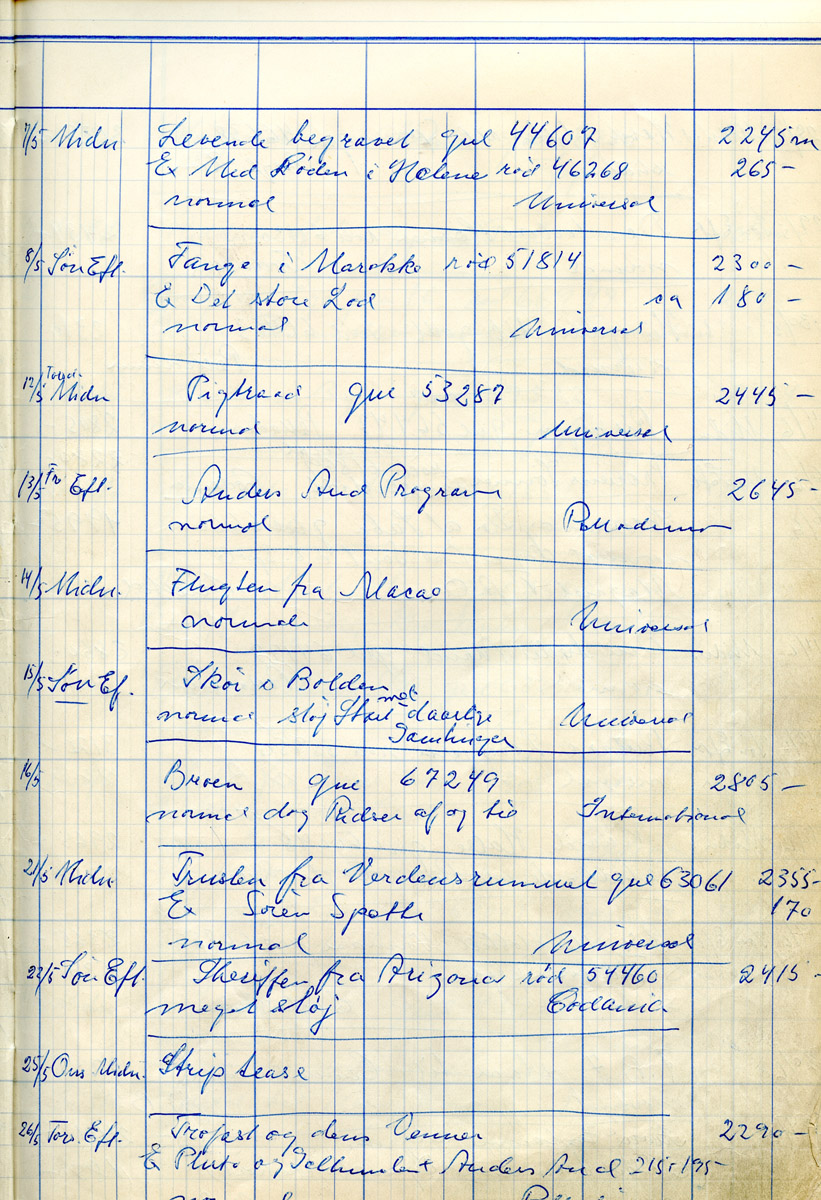 7/5 Midn Levende begravet gul 44607 2245 m
Ex Med Døden i Hælene rød 46268 265 -
normal Universal
8/5 Søn Eft. Fange i Marokko rød 51814 2300 -
Ex Det store Lod ca 180 -
normal Universal
12/5 Torsd. Midn Pigtraad gul 53287 2445 -
normal Universal
13/5 Fr Eft. Anders And Program 2645 -
normal Palladium
14/5 Midn. Flugten fra Macao
normal Universal
15/5 Søn Ef. Skøi o Bolden
normal støj Start met daarlige Universal
Samlinger
16/5 Broen gul 67249 2805 -
normal dog Ridser af og til International
21/5 Midn. Truslen fra Verdensrummet gul 63061 2355 -
Ex Søren Spætte 170
normal Universal
22/5 Søn Eft. Sheriffen fra Arizona rød 54460 2415 -
meget støj Codania
25/5 Ons Midn. Strip tease
26/5 Tors. Eft. Trofast og dens Venner 2290 -
Ex Pluto og Anders And 215 + 195 -